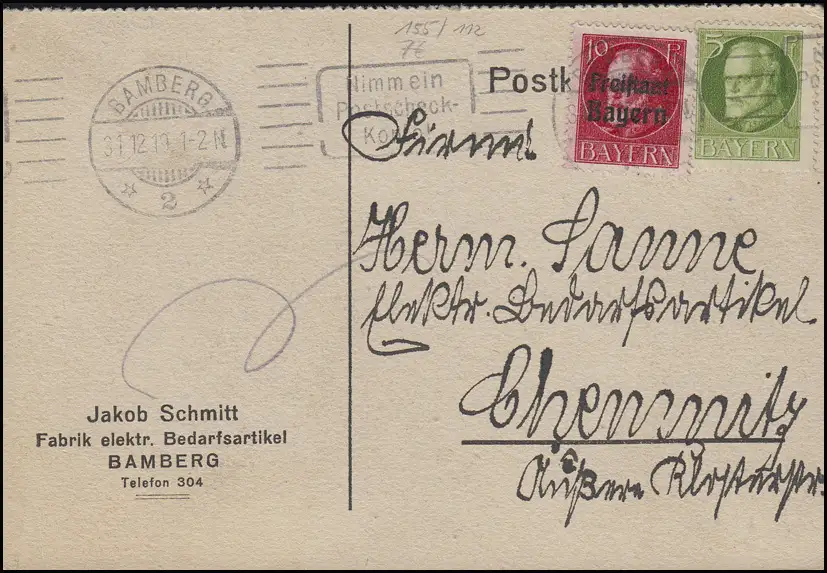 155/112
BAMBERG
31.12.19. 1-2N
2
Nimm ein
Postscheck-
Konto
Postk
10 P
Freistaat
Bayern
BAYERN
5 P
BAYERN
Firma
Herm. Sanne
Elektr. Bedarfsartikel
Chemnitz
Äußere Klosterstr.
Jakob Schmitt
Fabrik elektr. Bedarfsartikel
BAMBERG
Telefon 304